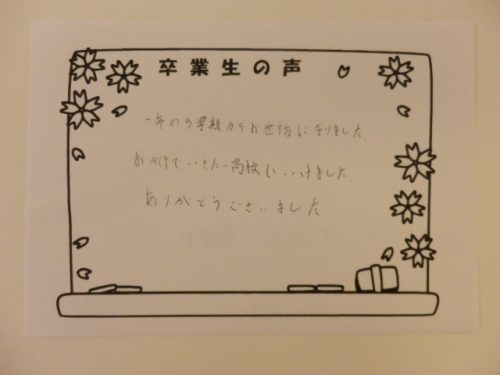 卒業生の声
一年の3学期からお世話になりました。
おかげでいきたい高校にいけました
ありがとうございました